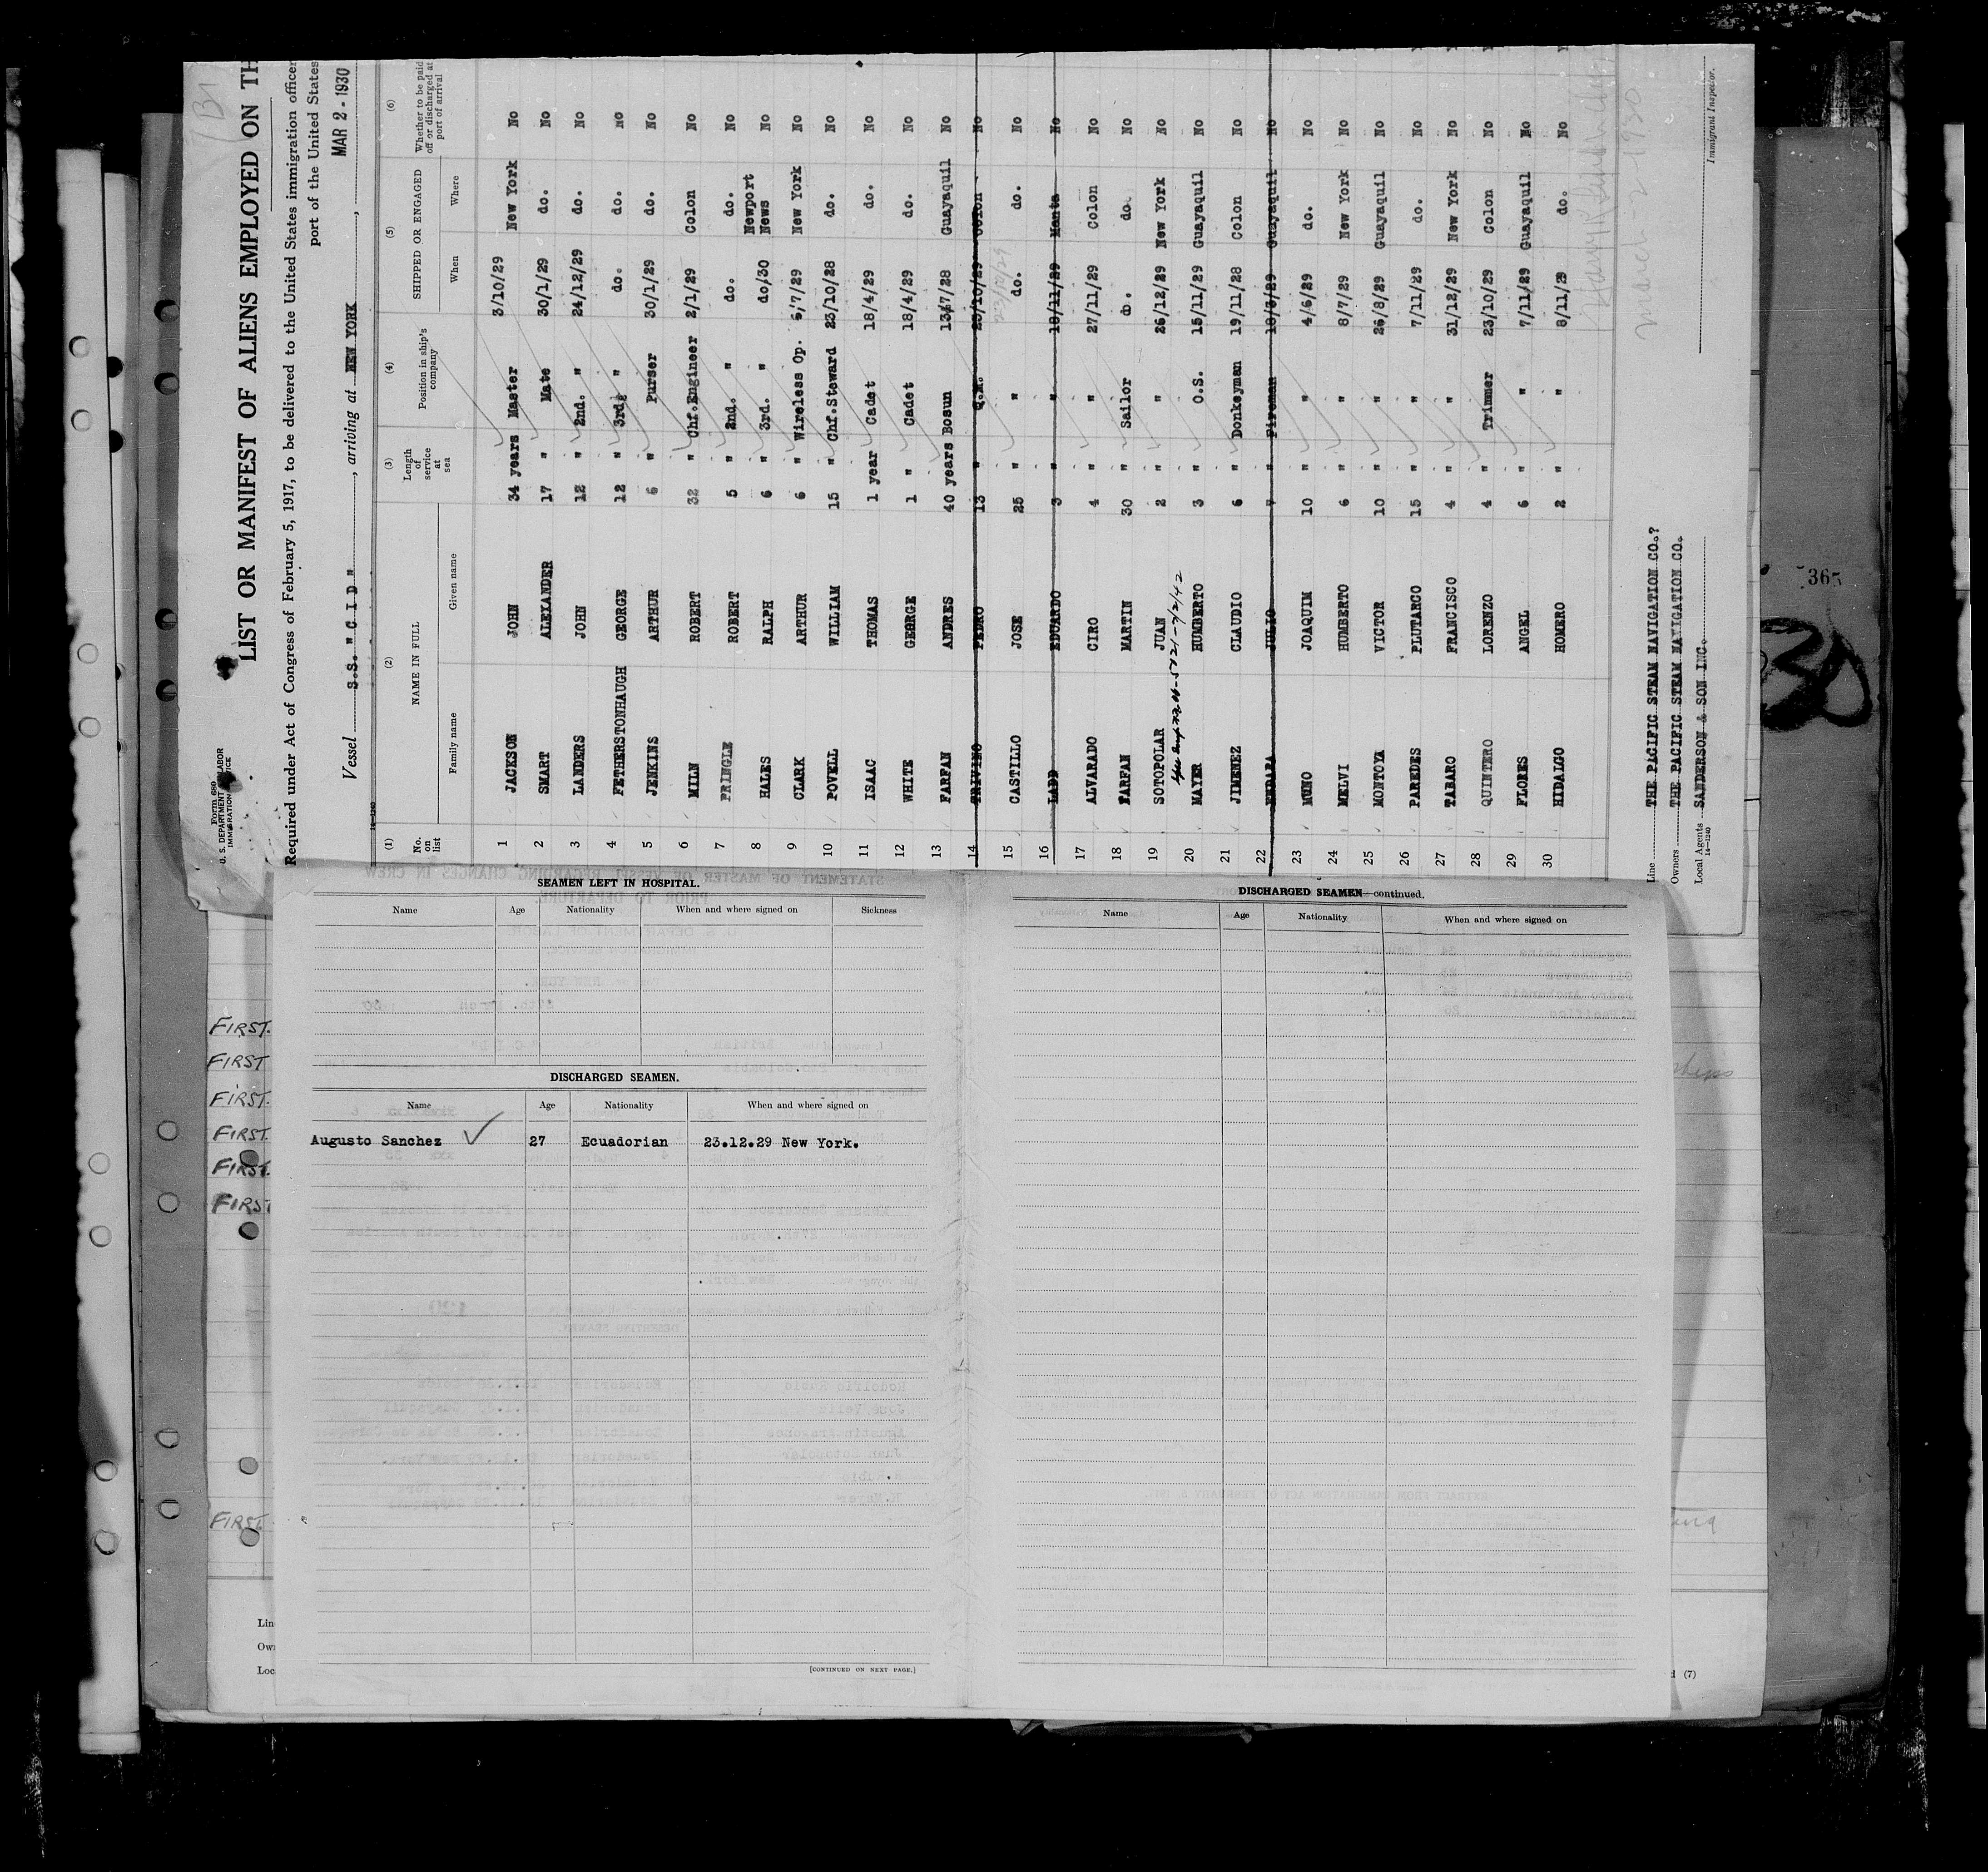 Form 680
U. S. DEPARTMENT OF LABOR
LIST OR MANIFEST OF ALIENS EMPLOYED ON TH
Required under Act of Congress of February 5, 1917, to be delivered to the United States immigration officer
port of the United States
Vessel S.S. "C I D", arriving at NEW YORK, MAR 2 - 1930
(1) (2) (3) (4) (5) (6)
No. on list NAME IN FULL Length of service at sea Position in ship's company SHIPPED OR ENGAGED Whether to be paid off or discharged at port of arrival
Family name Given name When Where
1 JACKSON JOHN 34 years Master 3/10/29 New York No
2 SMART ALEXANDER 17 " Mate 30/1/29 do. No
3 LANDERS JOHN 12 " 2nd. " 24/12/29 do. No
4 FETHERSTONHAUGH GEORGE 12 " 3rd. " do. do. No
5 JENKINS ARTHUR 6 " Purser 30/1/29 do. No
6 MILN ROBERT 32 " Chf.Engineer 2/1/29 Colon No
7 PRINGLE ROBERT 5 " 2nd. " do. do. No
8 HALES RALPH 6 " 3rd. " do/30 Newport News No
9 CLARK ARTHUR 6 " Wireless Op. 6/7/29 New York No
10 POVELL WILLIAM 15 " Chf.Steward 23/10/28 do. No
11 ISAAC THOMAS 1 year Cadet 18/4/29 do. No
12 WHITE GEORGE 1 " Cadet 18/4/29 do. No
13 FARFAN ANDRES 40 years Bosun 13/7/28 Guayaquil No
14 TRIVINO PEDRO 13 " Q.M. 23/10/29 Colon No
15 CASTILLO JOSE 25 " " do. do. No
16 LADD EDUARDO 3 " " 18/11/29 Manta No
17 ALVARADO CIRO 4 " " 27/11/29 Colon No
18 FARFAN MARTIN 30 " Sailor do. do. No
19 SOTOPOLAR JUAN 2 " " 26/12/29 New York No
20 MAYER HUMBERTO 3 " O.S. 15/11/29 Guayaquil No
21 JIMENEZ CLAUDIO 6 " Donkeyman 19/11/28 Colon No
22 ENDARA JULIO 7 " Fireman 18/3/29 Guayaquil No
23 MUNO JOAQUIM 10 " " 4/6/29 do. No
24 MELVI HUMBERTO 6 " " 8/7/29 New York No
25 MONTOYA VICTOR 10 " " 26/8/29 Guayaquil No
26 PAREDES PLUTARCO 15 " " 7/11/29 do. No
27 TABARO FRANCISCO 4 " " 31/12/29 New York No
28 QUINTERO LORENZO 4 " Trimmer 23/10/29 Colon No
29 FLORES ANGEL 6 " " 7/11/29 Guayaquil No
30 HIDALGO HOMERO 2 " " 8/11/29 do. No
Line THE PACIFIC STEAM NAVIGATION CO.?
Owners THE PACIFIC STEAM NAVIGATION CO.
Local Agents SANDERSON & SON INC.
14-1240
Immigrant Inspector.
365
SEAMEN LEFT IN HOSPITAL.
Name Age Nationality When and where signed on Sickness
DISCHARGED SEAMEN.
Name Age Nationality When and where signed on
Augusto Sanchez 27 Ecuadorian 23.12.29 New York.
[CONTINUED ON NEXT PAGE.]
DISCHARGED SEAMEN—continued.
Name Age Nationality When and where signed on
FIRST.
FIRST
FIRST.
FIRST.
FIRST.
FIRST
FIRST
Lin
Own
Loc
(7)